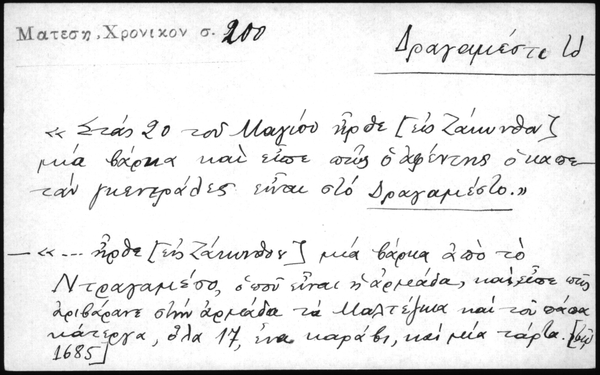 Ματεση, Χρονικον σ. 200
Δραγαμέστο
« Στάς 20 τοῦ Μαγίου ἦρθε [εἰς Ζάκυνθον]
μία βάρκα καὶ εἶπε πῶς ὁ ἀφέντης ὁ καπε-
τάν γκενεράλες εἶναι στό Δραγαμέστο.»
— «... ἦρθε [εἰς Ζάκυνθον] μία βάρκα ἀπὸ τὸ
Ντραγαμέσο, ὁποῦ εἶναι ἡ ἀρμάδα, καὶ εἶπε πῶς
ἀριβάρανε στὴν ἀρμάδα τὰ Μαλτέζικα καὶ τοῦ πάπα
κάτεργα, ὅλα 17, ἕνα καράβι, καὶ μία τάρτα.
1685]